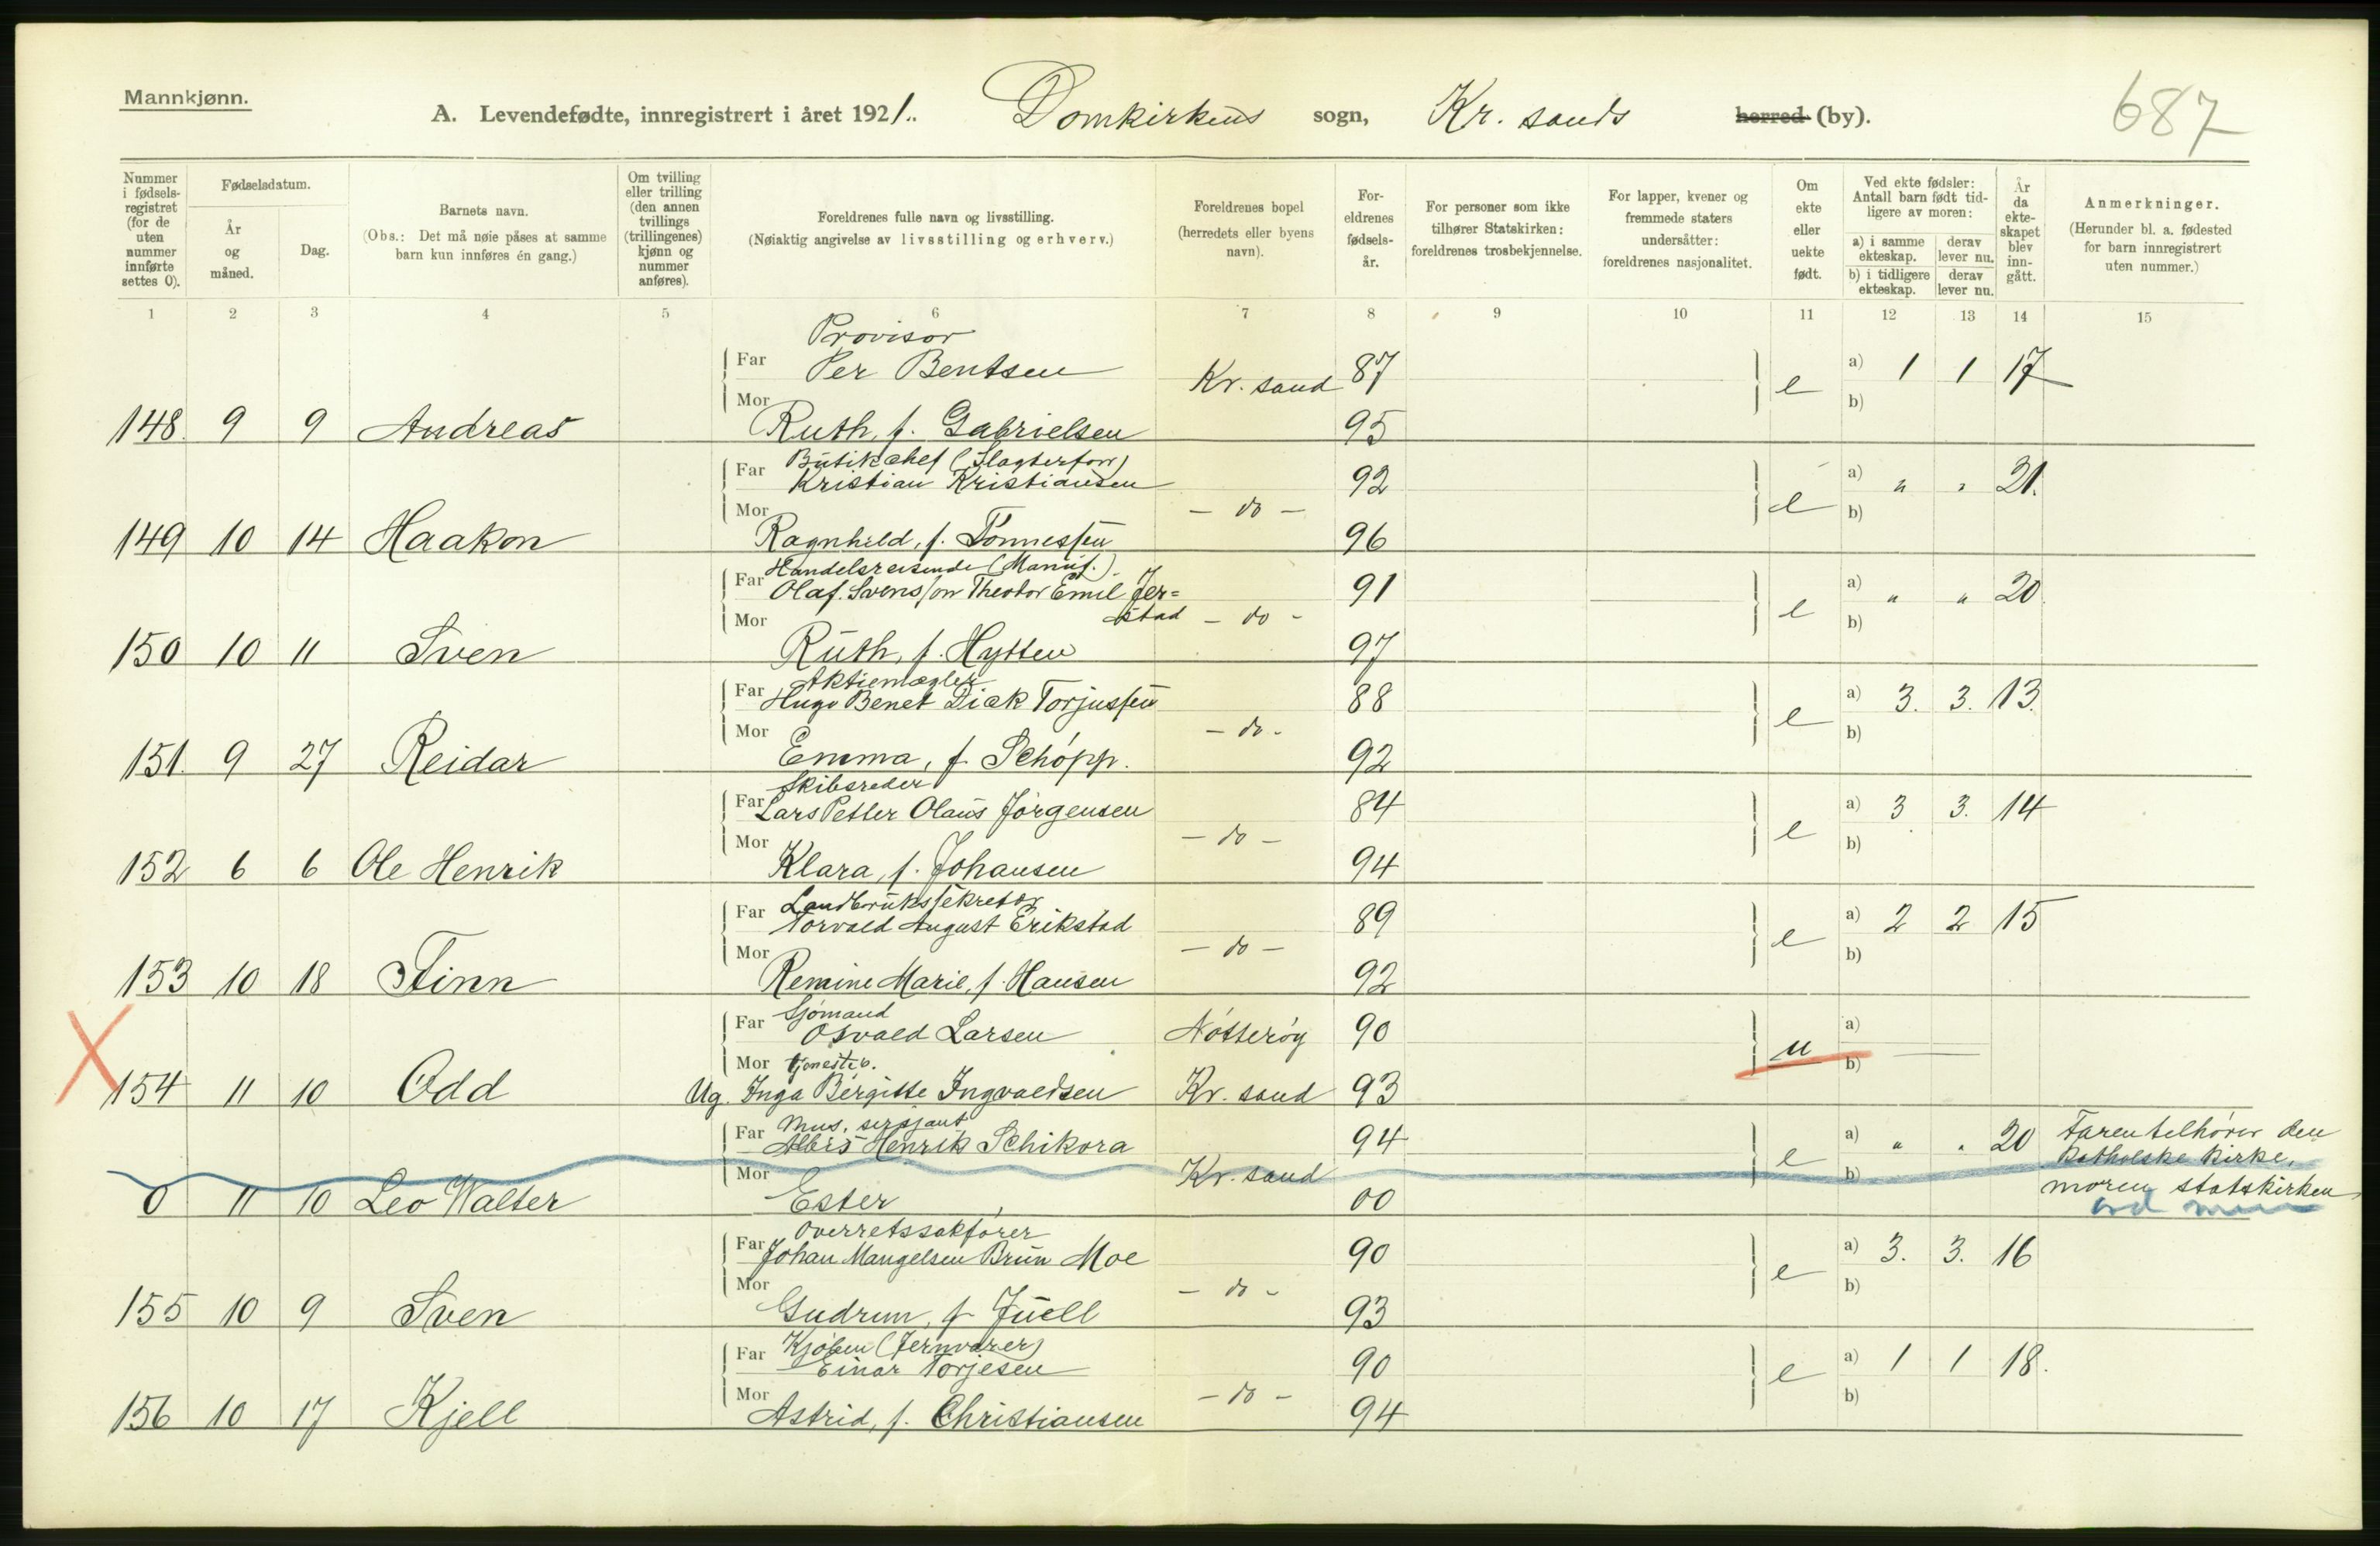 Mannkjønn.
A. Levendefødte, innregistrert i året 1921.. Domkirkens sogn, Kr. sands herred (by).
687
Nummer i fødsels-registret (for de uten nummer innførte settes 0).
Fødselsdatum.
År og måned.
Dag.
Barnets navn.
(Obs.: Det må nøie påses at samme barn kun innføres én gang.)
Om tvilling eller trilling (den annen tvillings (trillingenes) kjønn og nummer anføres).
Foreldrenes fulle navn og livsstilling.
(Nøiaktig angivelse av livsstilling og erhverv.)
Foreldrenes bopel (herredets eller byens navn).
For-eldrenes fødsels-år.
For personer som ikke tilhører Statskirken: foreldrenes trosbekjennelse.
For lapper, kvener og fremmede staters undersåtter: foreldrenes nasjonalitet.
Om ekte eller uekte født.
Ved ekte fødsler: Antall barn født tid-ligere av moren:
a) i samme ekteskap.
derav lever nu.
b) i tidligere ekteskap.
derav lever nu.
År da ekte-skapet blev inn-gått.
Anmerkninger.
(Herunder bl. a. fødested for barn innregistrert uten nummer.)
1 2 3 4 5 6 7 8 9 10 11 12 13 14 15
Provisor
Far Per Bentsen Kr. sand 87 e a) 1 1 17
Mor b)
148 9 9 Andreas Ruth, f. Gabrielsen 95
Butikchef (Slagterforr)
Far Kristian Kristiansen 92 e a) " " 21.
Mor - do - b)
149 10 14 Haakon Ragnhild, f. Tønnessen 96
Handelsreisende (Manuf.)
Far Olaf Svensson Theodor Emil Jer= 91 e a) " " 20
Mor stad - do - b)
150 10 11 Sven Ruth, f. Hytten 97
Aktiemægler
Far Hugo Benet Dick Torjussen 88 e a) 3. 3. 13.
Mor - do - b)
151. 9 27 Reidar Emma, f. Schøpp. 92
Skibsreder
Far Lars Petter Olaus Jørgensen 84 e a) 3 3. 14
Mor - do - b)
152 6 6 Ole Henrik Klara, f. Johansen 94
Landbrukssekretær
Far Torvald August Erikstad 89 e a) 2 2 15
Mor - do - b)
153 10 18 Finn Remine Marie, f. Hansen 92
Sjømand
Far Osvald Larsen Nøtterøy 90 u a)
Mor tjenestep. b)
154 11 10 Odd Ug. Inga Bergitte Ingvaldsen Kr. sand 93
Mus. sersjant
Far Henrik Schikora 94 e a) " " 20 Faren tilhører den
Mor Kr. sand b) katholske kirke,
0 11 10 Leo Walter Ester 00 moren statskirken
Overretssakfører
Far Johan Mangelsen Brun Moe 90 e a) 3. 3. 16
Mor - do - b)
155 10 9 Sven Gudrun, f. Juell 93
Kjøbm (Jernvarer)
Far Einar Torjesen 90 e a) 1 1 18.
Mor - do - b)
156 10 17 Kjell Astrid, f. Christiansen 94